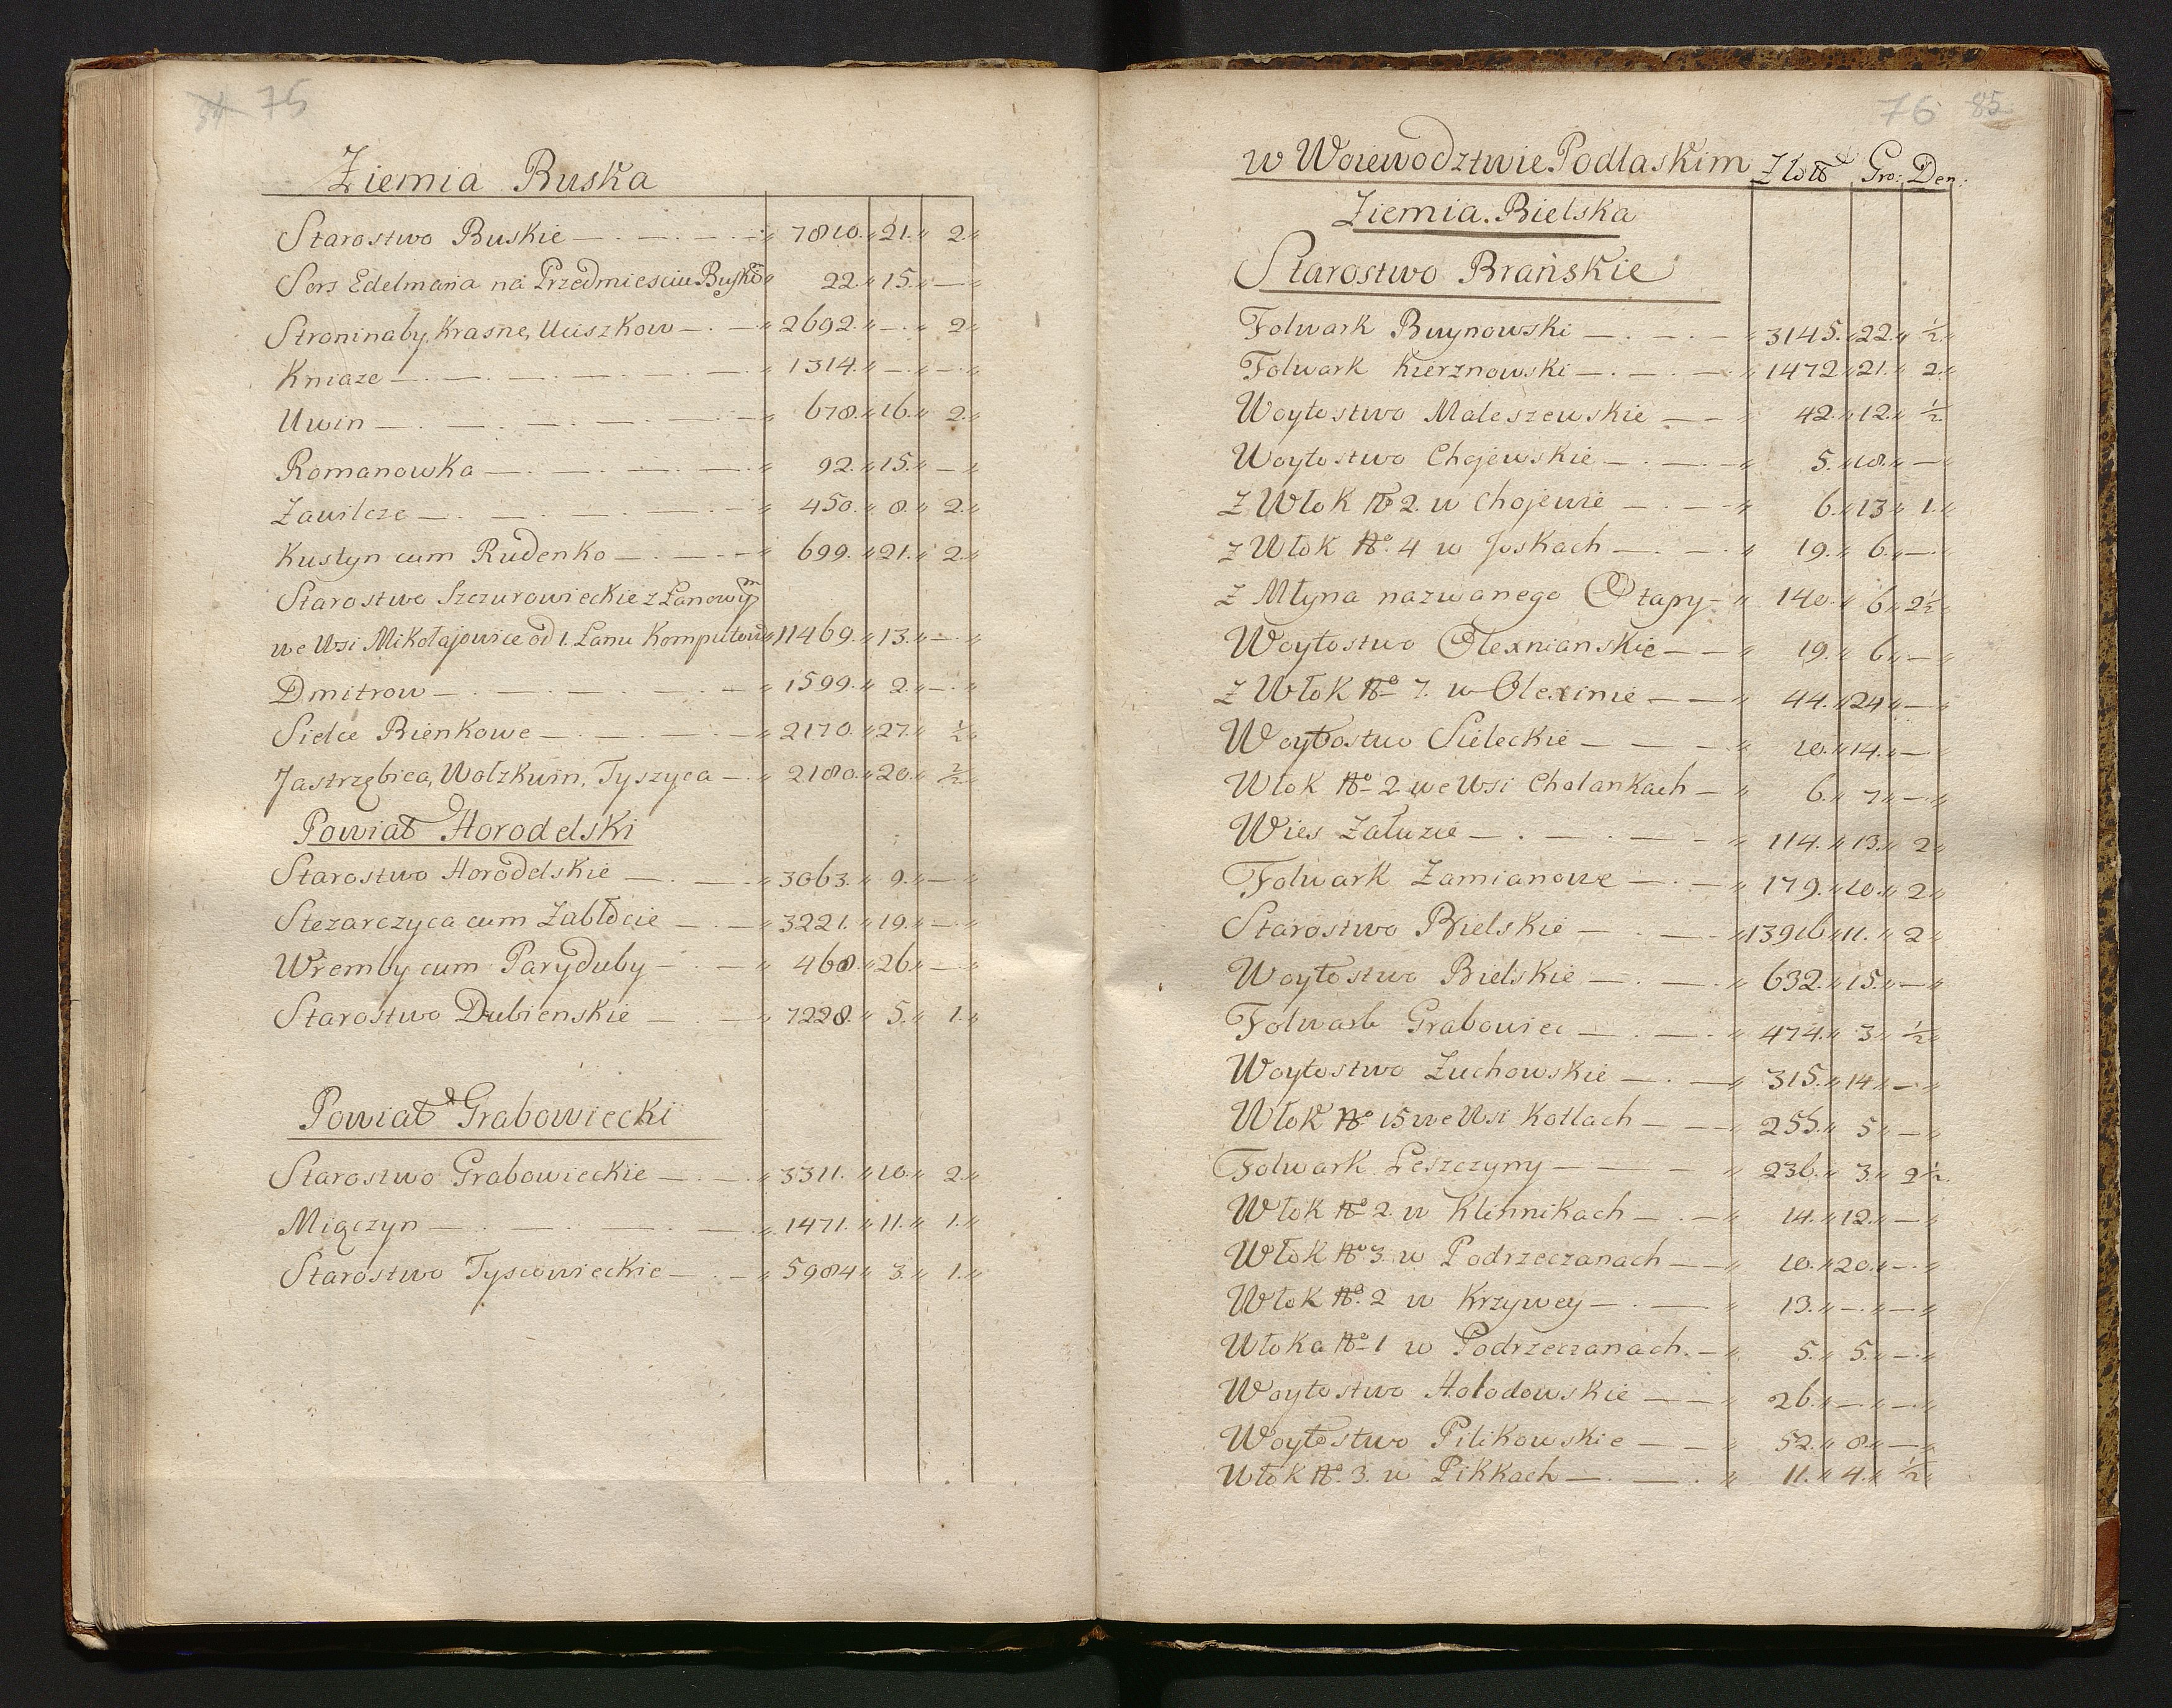 84 75
Ziemia Buska
Starostwo Buskie — . — . — . — „ 7810. „ 21. „ 2. „
Sors Edelmana na Przedmiesciu Busko „ 22. „ 15. „ — „
Stroninaby, Krasne, Uciszkow — . — „ 2692. „ — . „ 2 „
Kniaze — . — . — . — „ 1314. „ — . „ — . „
Uwin — . — . — . — „ 678. „ 16. „ 2. „
Romanowka — . — . — . — „ 92. „ 15. „ — „
Zawilcze — . — . — . — „ 450. „ 8. „ 2. „
Kustyn cum Rudenko — . — . — „ 699. „ 21. „ 2. „
Starostwo Szczurowieckie z Lanowym
we Wsi Mikołajowice od 1. Lanu Komputow „ 11469. „ 13. „ — . „
Dmitrow — . — . — . — „ 1599. „ 2. „ — . „
Sielce Bienkowe — . — . — „ 2170. „ 27. „ ½ „
Jastrzębica, Wolzkwin, Tyszyca — . „ 2180. „ 20. „ 2/2 „
Powiat Horodelski
Starostwo Horodelskie — . — „ 3063. „ 9. „ — . „
Stezarczyca cum Zabłocie — . — „ 3221. „ 19. „ — . „
Wremby cum Paryduby — . — „ 468. „ 26. „ — . „
Starostwo Dubienskie — . — „ 7228. „ 5. „ 1. „
Powiat Grabowiecki
Starostwo Grabowieckie — . — „ 3311. „ 10. „ 2. „
Miączyn — . — . — . — „ 1471. „ 11. „ 1. „
Starostwo Tyszowieckie — . — „ 5984 „ 3. „ 1. „
76 85
w Woiewodztwie Podlaskim Złott Gro: Den:
Ziemia. Bielska
Starostwo Brańskie
Folwark Buynowski — . — . — „ 3145. „ 22. „ ½ „
Folwark Kierznowski — . — . — „ 1472 „ 21. „ 2. „
Woytostwo Maleszewskie — — „ 42. „ 12. „ ½
Woytostwo Chojewskie — . — . — „ 5. „ 18. „ — „
Z Włok No 2. w Chojewie — . — „ 6. „ 13 „ 1. „
z Włok No. 4 w Joskach — . — . „ 19. „ 6. „ — . „
Z Młyna nazwanego Otapy — „ 140. „ 6 „ 2½ „
Woytostwo Olexnianskie — — „ 19. „ 6 „ — „
Z Włok No 7. w Oleximie — — „ 44. „ 24 „ — „
Woytostwo Sieleckie — — — „ 10. „ 14. „ — „
Włok No 2 we Wsi Cholankach — „ 6. „ 7 „ — „
Wies Załuzie — . — . — — „ 114. „ 13. „ 2 „
Folwark Zamianowe — . — „ 179. „ 10. „ 2 „
Starostwo Bielskie — . — „ 13916 „ 11. „ 2 „
Woytostwo Bielskie — . — . „ 632. „ 15. „ — „
Folwark Grabowiec — . — . „ 474. „ 3 „ ½ „
Woytostwo Zuchowskie — . — „ 315. „ 14 „ — . „
Włok No 15 we Wsi Kotlach — — „ 255. „ 5 „ — „
Folwark Leszczyny — — — „ 236. „ 3. „ 2½.
Włok No 2. w Klinnikach — . — „ 14. „ 12. „ — „
Włok No 3. w Podrzeczanach — — „ 10. „ 20. „ — . „
Włok No. 2 w Krzywey — . — „ 13. „ — . „ — „
Włoka No 1 w Podrzeczanach. — „ 5. „ 5. „ — . „
Woytostwo Hołodowskie — — „ 26. „ — . „ — . „
Woytostwo Pilikowskie — — „ 52. „ 8. „ — . „
Włok No. 3. w Pikkach — . — . „ 11. „ 4. „ ½ „